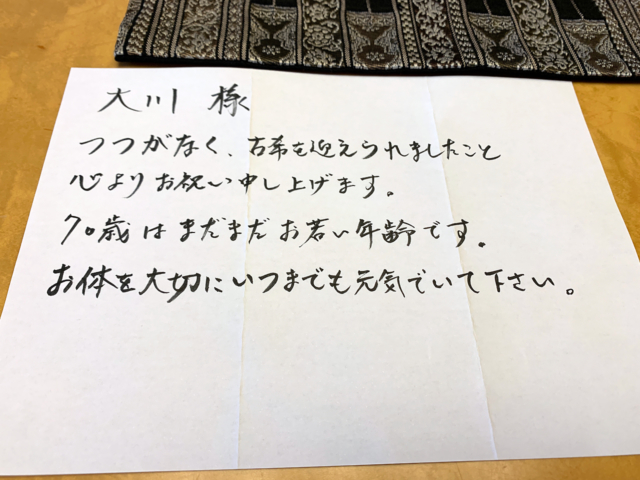 大川 様
つつがなく、古希を迎えられましたこと
心よりお祝い申し上げます。
70歳はまだまだお若い年齢です。
お体を大切にいつまでも元気でいて下さい。